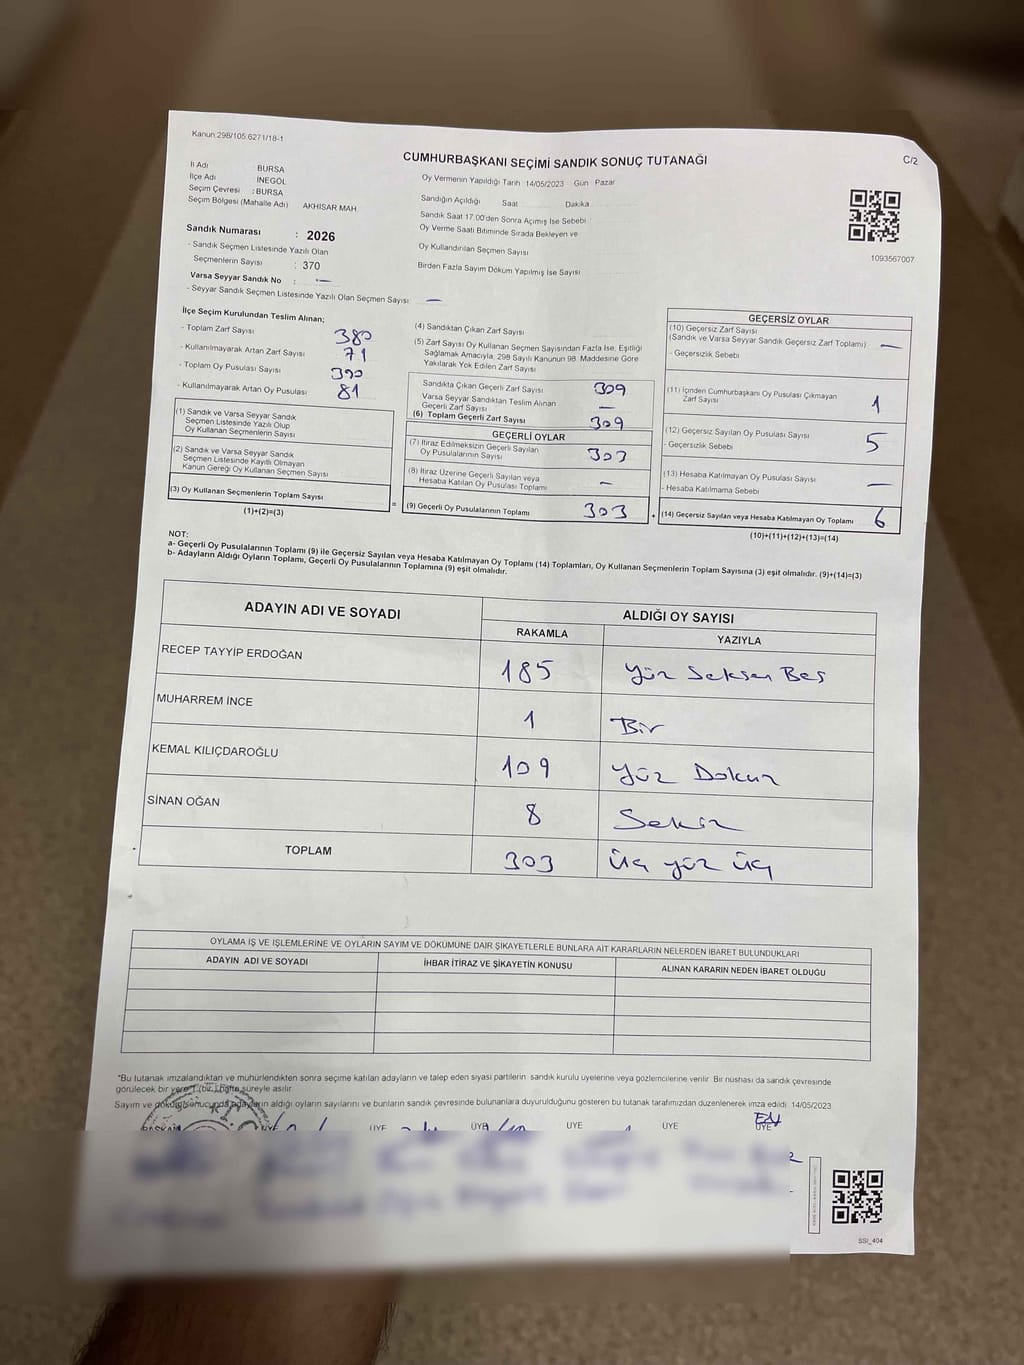 Kanun:298/105.6271/18-1
CUMHURBAŞKANI SEÇİMİ SANDIK SONUÇ TUTANAĞI
C/2
İl Adı BURSA
İlçe Adı İNEGÖL
Seçim Çevresi : BURSA
Seçim Bölgesi (Mahalle Adı) AKHİSAR MAH.
Oy Vermenin Yapıldığı Tarih 14/05/2023 Gün Pazar
Sandığın Açıldığı Saat Dakika
Sandık Saat 17.00'den Sonra Açımış İse Sebebi
Oy Verme Saati Bitiminde Sırada Bekleyen ve
Oy Kullandırılan Seçmen Sayısı
Birden Fazla Sayım Döküm Yapılmış İse Sayısı
1093567007
Sandık Numarası : 2026
- Sandık Seçmen Listesinde Yazılı Olan
Seçmenlerin Sayısı : 370
Varsa Seyyar Sandık No : —
- Seyyar Sandık Seçmen Listesinde Yazılı Olan Seçmen Sayısı —
İlçe Seçim Kurulundan Teslim Alınan;
- Toplam Zarf Sayısı 380
- Kullanılmayarak Artan Zarf Sayısı 71
- Toplam Oy Pusulası Sayısı 390
- Kullanılmayarak Artan Oy Pusulası 81
(1) Sandık ve Varsa Seyyar Sandık
Seçmen Listesinde Yazılı Olup
Oy Kullanan Seçmenlerin Sayısı
(2) Sandık ve Varsa Seyyar Sandık
Seçmen Listesinde Kayıtlı Olmayan
Kanun Gereği Oy Kullanan Seçmen Sayısı
(3) Oy Kullanan Seçmenlerin Toplam Sayısı
(1)+(2)=(3)
(4) Sandıktan Çıkan Zarf Sayısı
(5) Zarf Sayısı Oy Kullanan Seçmen Sayısından Fazla İse, Eşitliği
Sağlamak Amacıyla, 298 Sayılı Kanunun 98. Maddesine Göre
Yakılarak Yok Edilen Zarf Sayısı
Sandıkta Çıkan Geçerli Zarf Sayısı 309
Varsa Seyyar Sandıktan Teslim Alınan
Geçerli Zarf Sayısı —
(6) Toplam Geçerli Zarf Sayısı 309
GEÇERLİ OYLAR
(7) İtiraz Edilmeksizin Geçerli Sayılan
Oy Pusulalarının Sayısı 303
(8) İtiraz Üzerine Geçerli Sayılan veya
Hesaba Katılan Oy Pusulası Toplamı —
= (9) Geçerli Oy Pusulalarının Toplamı 303 +
GEÇERSİZ OYLAR
(10) Geçersiz Zarf Sayısı
(Sandık ve Varsa Seyyar Sandık Geçersiz Zarf Toplamı) —
- Geçersizlik Sebebi
(11) İçinden Cumhurbaşkanı Oy Pusulası Çıkmayan
Zarf Sayısı 1
(12) Geçersiz Sayılan Oy Pusulası Sayısı 5
- Geçersizlik Sebebi
(13) Hesaba Katılmayan Oy Pusulası Sayısı —
- Hesaba Katılmama Sebebi
(14) Geçersiz Sayılan veya Hesaba Katılmayan Oy Toplamı 6
(10)+(11)+(12)+(13)=(14)
NOT:
a- Geçerli Oy Pusulalarının Toplamı (9) ile Geçersiz Sayılan veya Hesaba Katılmayan Oy Toplamı (14) Toplamları, Oy Kullanan Seçmenlerin Toplam Sayısına (3) eşit olmalıdır. (9)+(14)=(3)
b- Adayların Aldığı Oyların Toplamı, Geçerli Oy Pusulalarının Toplamına (9) eşit olmalıdır.
ADAYIN ADI VE SOYADI ALDIĞI OY SAYISI
RAKAMLA YAZIYLA
RECEP TAYYİP ERDOĞAN 185 Yüz Seksen Beş
MUHARREM İNCE 1 Bir
KEMAL KILIÇDAROĞLU 109 Yüz Dokuz
SİNAN OĞAN 8 Sekiz
TOPLAM 303 Üç yüz üç
OYLAMA İŞ VE İŞLEMLERİNE VE OYLARIN SAYIM VE DÖKÜMÜNE DAİR ŞİKAYETLERLE BUNLARA AİT KARARLARIN NELERDEN İBARET BULUNDUKLARI
ADAYIN ADI VE SOYADI İHBAR İTİRAZ VE ŞİKAYETİN KONUSU ALINAN KARARIN NEDEN İBARET OLDUĞU
*Bu tutanak imzalandıktan ve mühürlendikten sonra seçime katılan adayların ve talep eden siyasi partilerin sandık kurulu üyelerine veya gözlemcilerine verilir. Bir nüshası da sandık çevresinde
görülecek bir yere 1 (bir) hafta süreyle asılır.
Sayım ve dökülüş sonucunda adayların aldığı oyların sayılarını ve bunların sandık çevresinde bulunanlara duyurulduğunu gösteren bu tutanak tarafımızdan düzenlenerek imza edildi. 14/05/2023
BAŞKAN ÜYE ÜYE ÜYE ÜYE ÜYE ÜYE
SSI_404